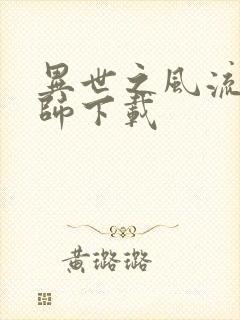 異世之風流
師下載
黃璐璐